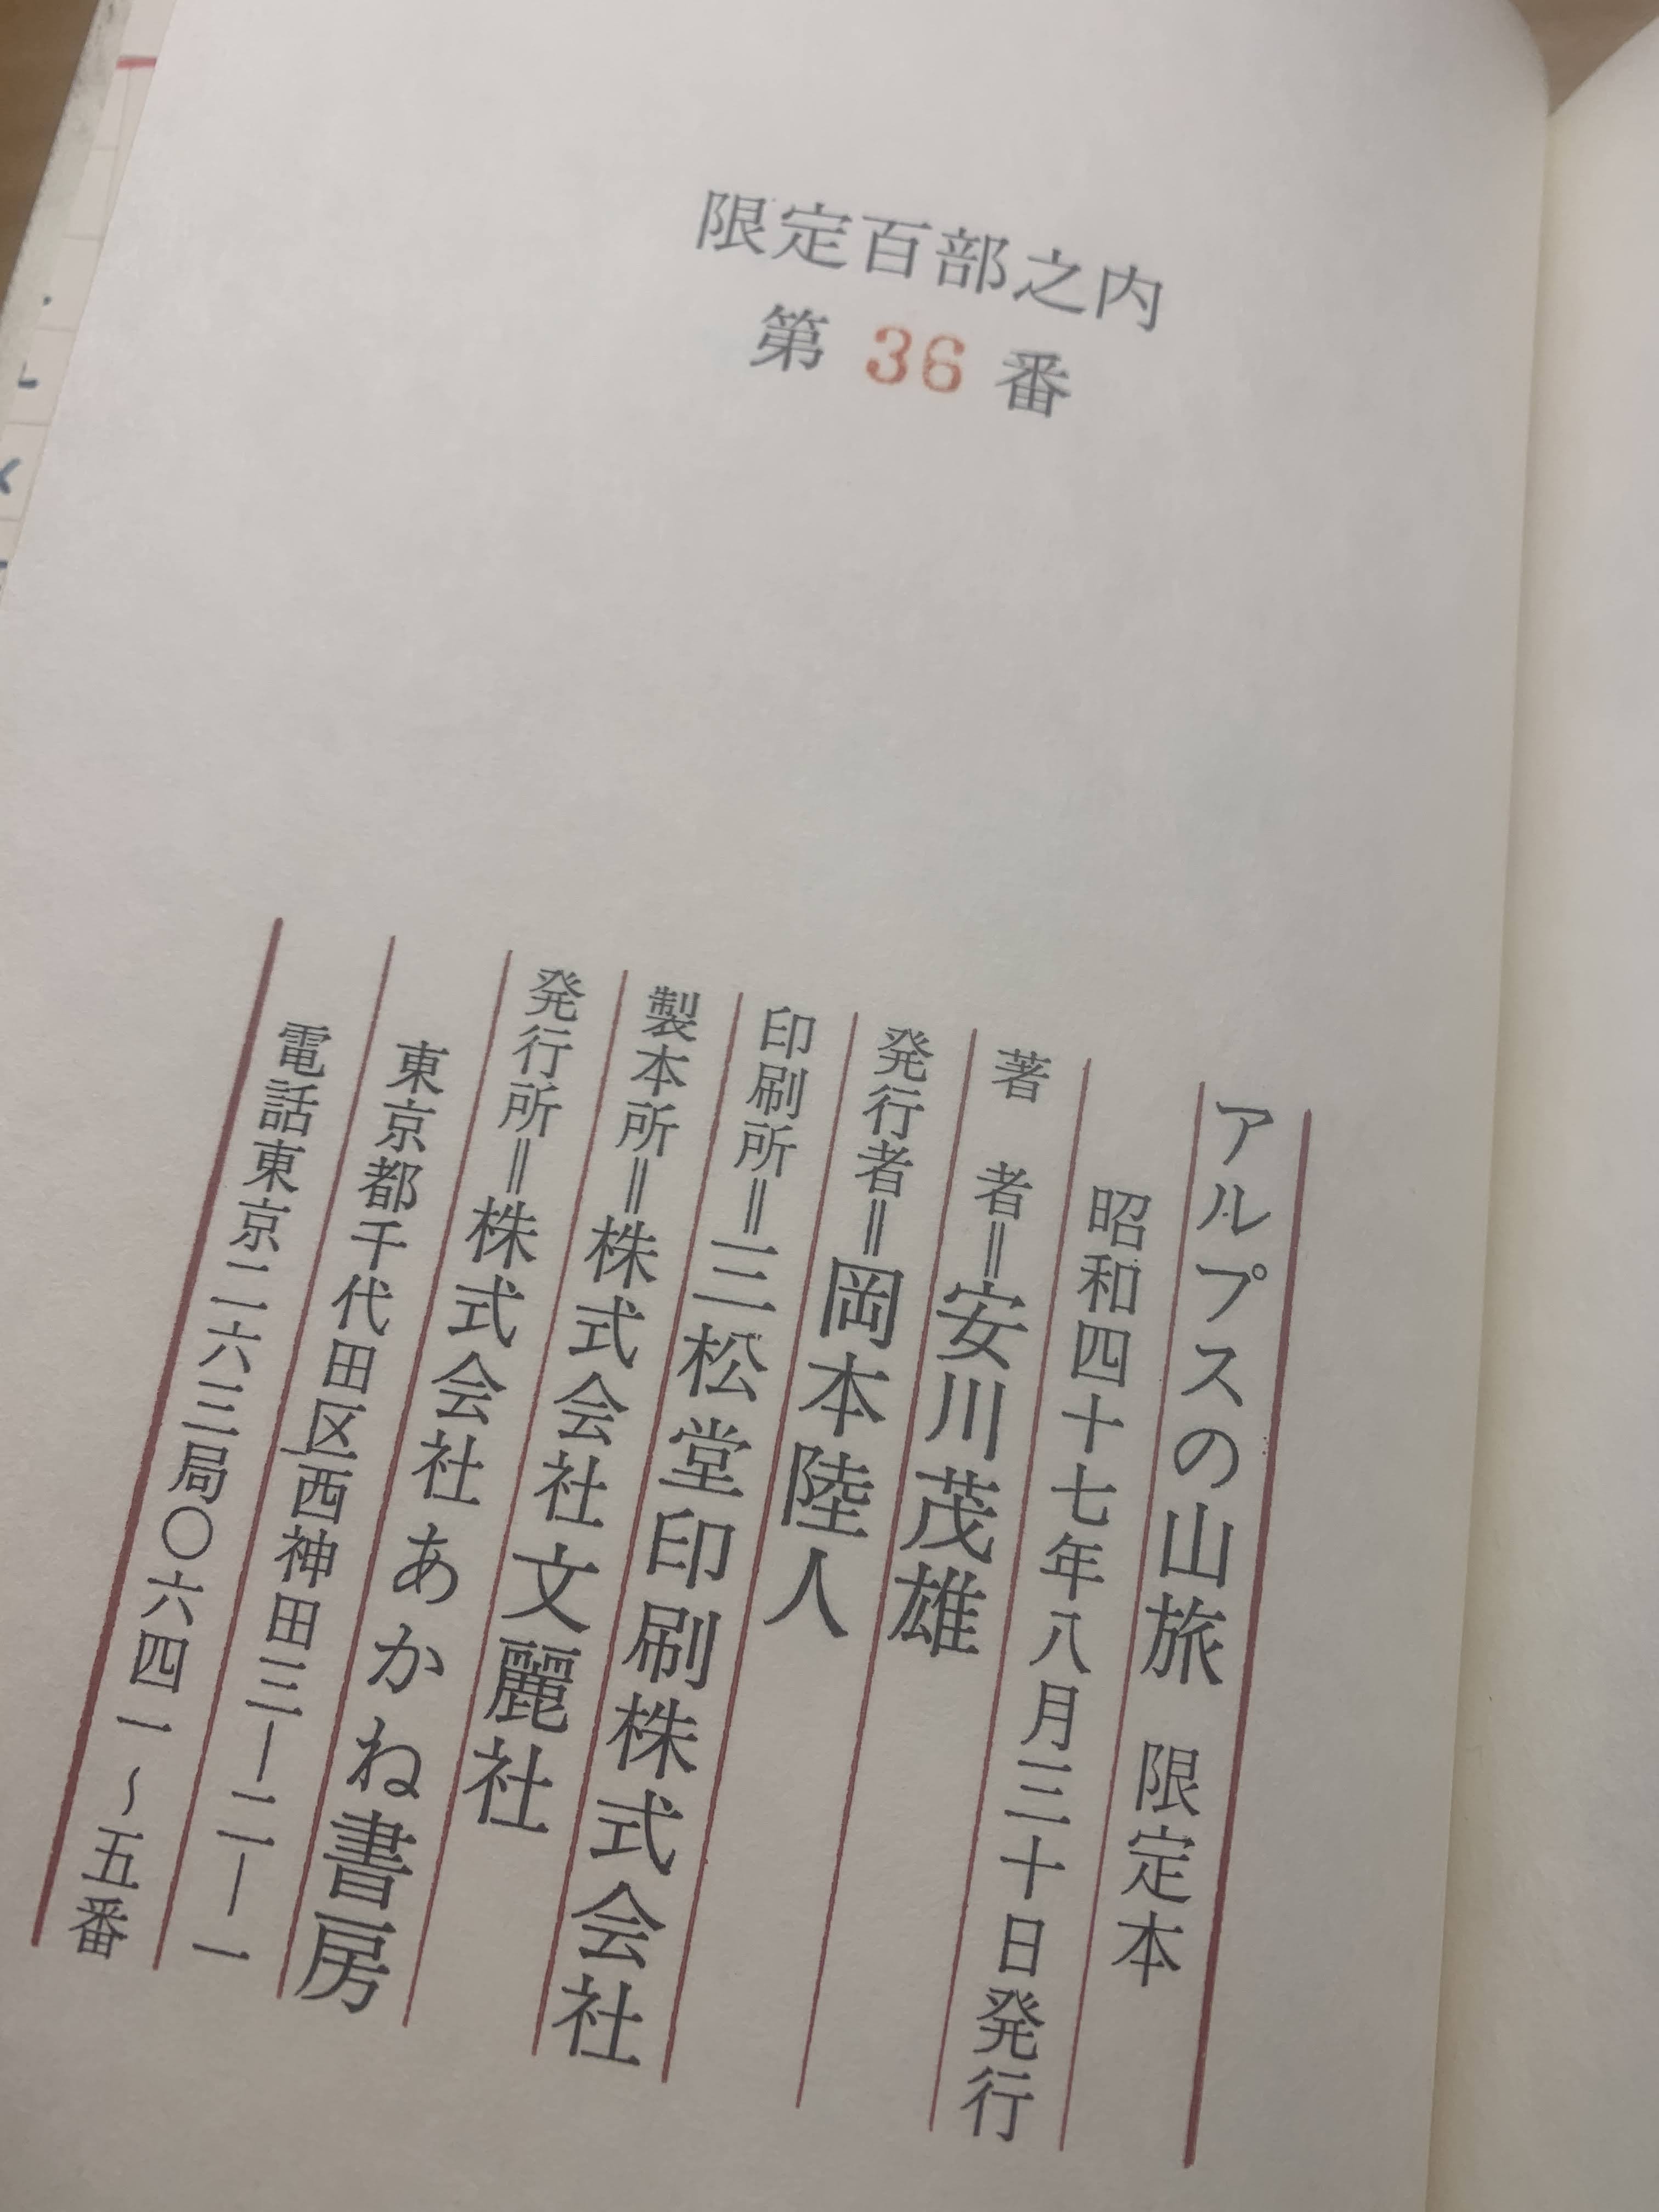 限定百部之内
第 36 番
アルプスの山旅　限定本
昭和四十七年八月三十日発行
著　者＝安川茂雄
発行者＝岡本陸人
印刷所＝三松堂印刷株式会社
製本所＝株式会社文麗社
発行所＝株式会社あかね書房
東京都千代田区西神田三―二―一
電話東京二六三局〇六四一～五番